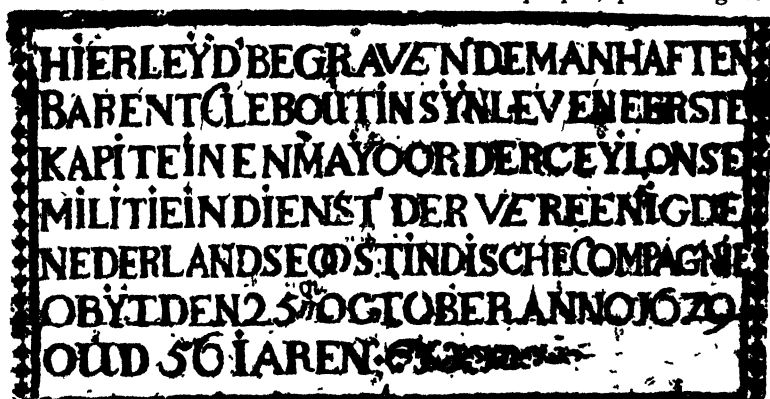 HIER LEYD BEGRAVEN DE MANHAFTEN
BARENT CLEBOUT IN SYN LEVEN EERSTE
KAPITEIN EN MAYOOR DER CEYLONSE
MILITIE IN DIENST DER VEREENIGDE
NEDERLANDSE OOSTINDISCHE COMPAGNIE
OBYT DEN 25 OCTOBER ANNO 1679
OUD 56 IAREN